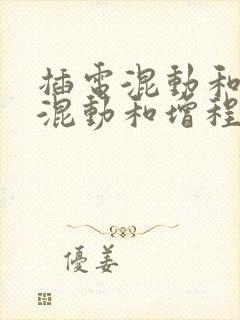 插电混動和
混動和增程
優姜